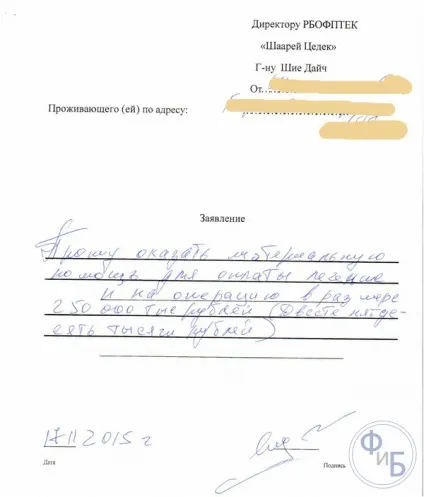 Директору РБОФПТЕК
«Шаарей Цедек»
Г-ну Шие Дайч
От
Проживающего (ей) по адресу:
Заявление
Прошу оказать материальную
помощь для оплаты лечение
и на операцию в размере
250 000 тыс рублей (Двести пятде-
сять тысяч рублей)
17 11 2015 г
Дата
Подпись
ФиБ